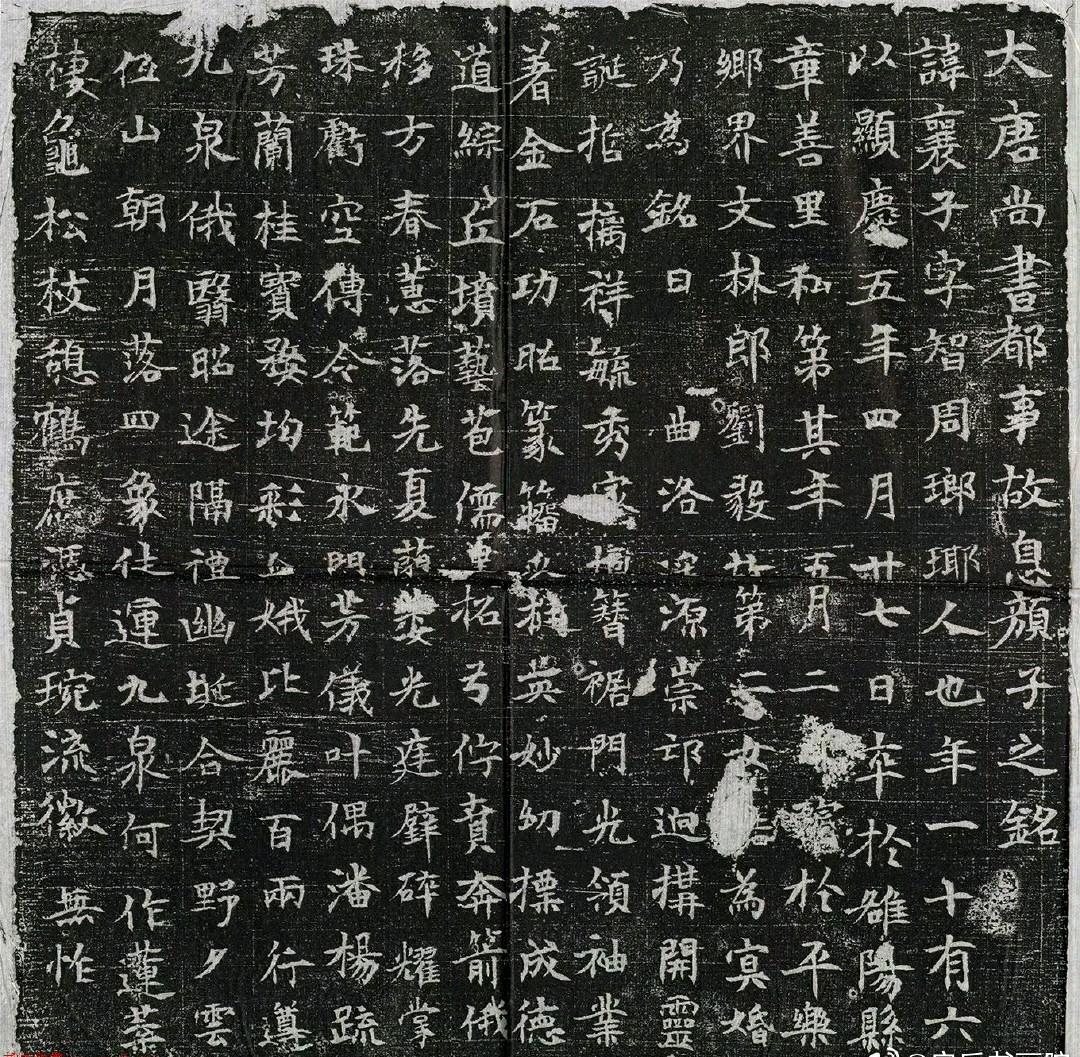 大唐尚書都事故息顏子之銘
諱襄子字智周瑯琊人也年一十有六
以顯慶五年四月廿七日卒於雒陽縣
章善里私第其年五月二於平樂
鄉界文林郎劉毅第二女為冥婚
乃為銘曰曲洛源崇邙迥構開靈
誕指摛祥毓秀家簪裾門光領袖業
著金石功昭篆籀英妙幼摽成德
道綜丘墳藝苞儒拓弓佇賁奔箭俄
移方春蕙落先夏蘭萎光庭璧碎耀掌
珠虧空傳令範永閟芳儀叶偶潘楊疏
芳蘭桂寶婺均彩上娥比麗百兩行遵
九泉俄翳昭途隔禮幽埏合契野夕雲
低山朝月落四象住運九泉何作蓮葉
棲龜松枝憩鶴庶憑貞琬流徽無怍